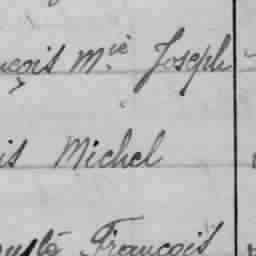 çois M.ie Joseph
is Michel
François